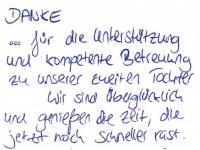 DANKE
... für die Unterstützung
und kompetente Betreuung
zu unserer zweiten Tochter
Wir sind überglücklich
und genießen die Zeit, die
jetzt noch schneller rast.